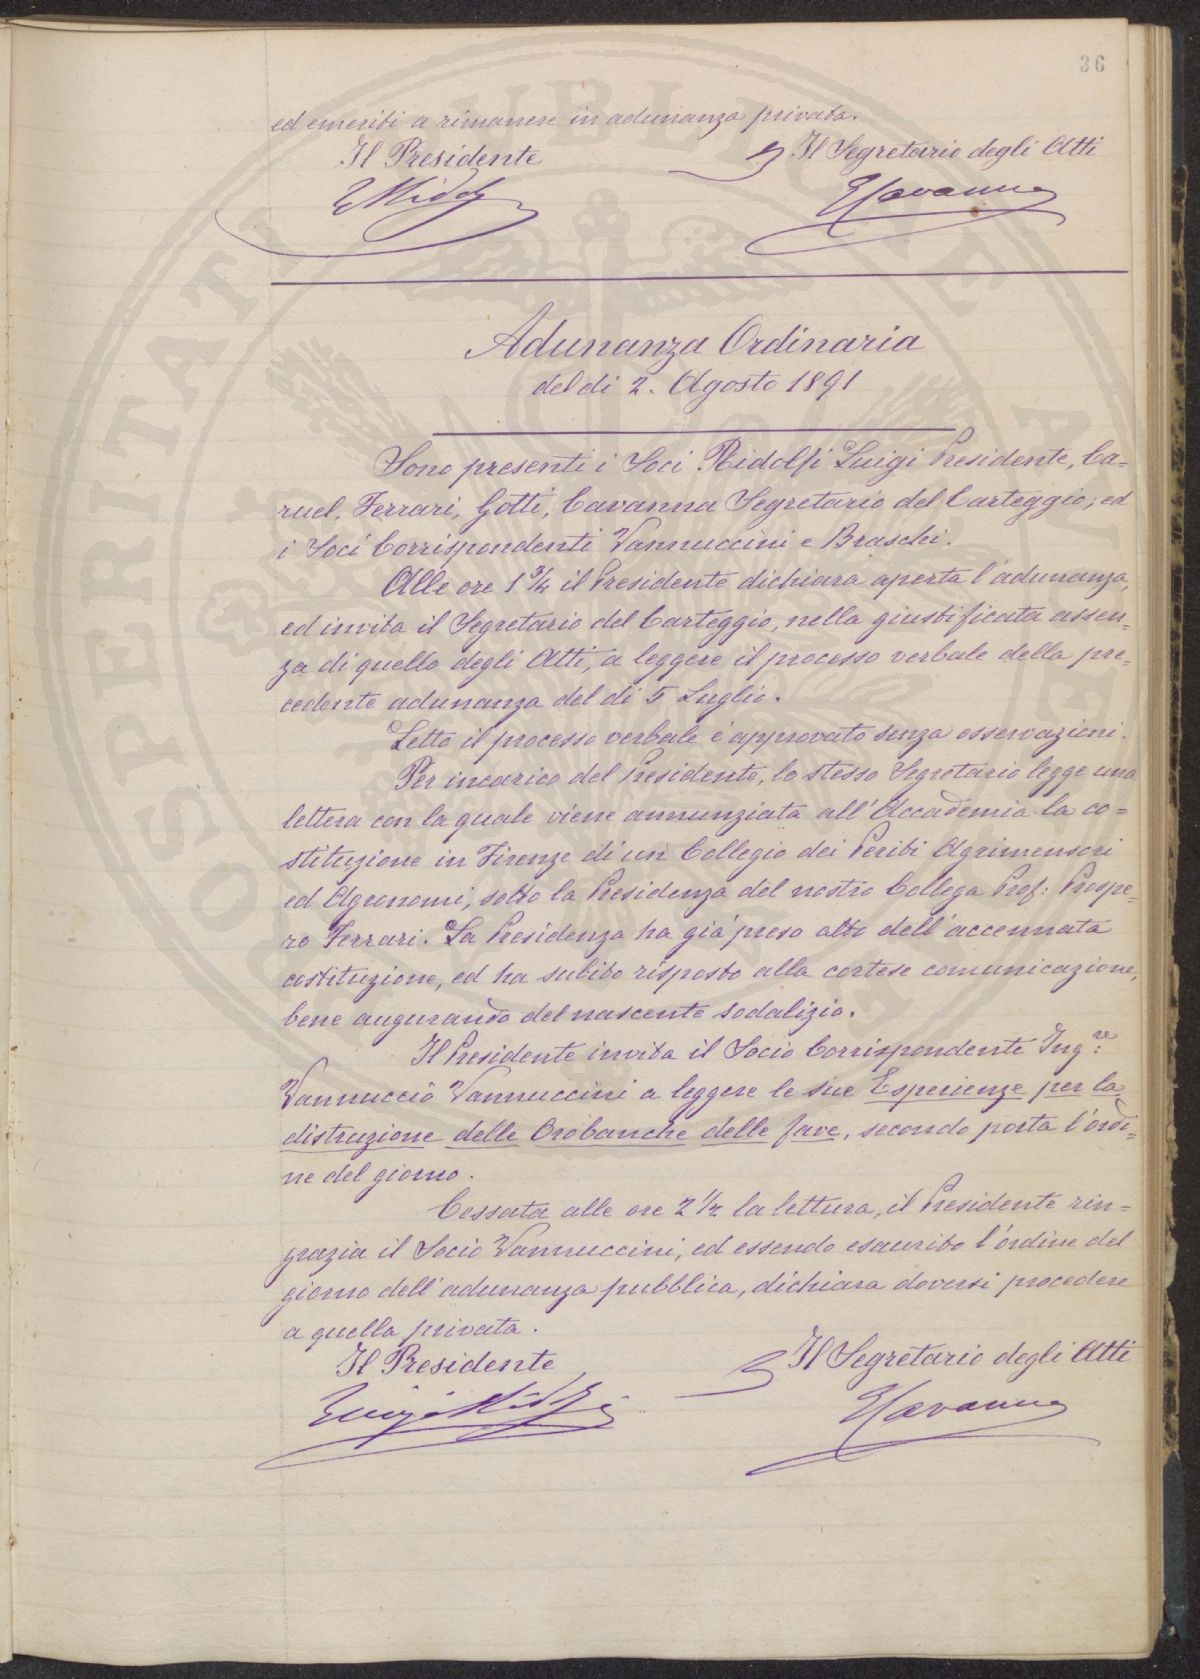 36
ed emeriti a rimanere in adunanza privata.
Il Presidente
Il Segretario degli Atti
LRidolfi
ECavanna
Adunanza Ordinaria
del dì 2. Agosto 1891
Sono presenti i Soci Ridolfi Luigi Presidente, Ca=
ruel, Ferrari, Gotti, Cavanna Segretario del Carteggio; ed
i Soci Corrispondenti Vannuccini e Braschi.
Alle ore 1 3/4 il Presidente dichiara aperta l'adunanza,
ed invita il Segretario del Carteggio, nella giustificata assen=
za di quello degli Atti, a leggere il processo verbale della pre=
cedente adunanza del dì 5 Luglio.
Letto il processo verbale è approvato senza osservazioni.
Per incarico del Presidente, lo stesso Segretario legge una
lettera con la quale viene annunziata all'Accademia la co=
stituzione in Firenze di un Collegio dei Periti Agrimensori
ed Agronomi, sotto la Presidenza del nostro Collega Prof: Prospe=
ro Ferrari. La Presidenza ha già preso atto dell'accennata
costituzione, ed ha subito risposto alla cortese comunicazione,
bene augurando del nascente sodalizio.
Il Presidente invita il Socio Corrispondente Ing:re
Vannuccio Vannuccini a leggere le sue Esperienze per la
distruzione delle Orobanche delle fave, secondo porta l'ordi=
ne del giorno.
Cessata alle ore 2 1/2 la lettura, il Presidente rin=
grazia il Socio Vannuccini, ed essendo esaurito l'ordine del
giorno dell'adunanza pubblica, dichiara doversi procedere
a quella privata.
Il Presidente
Il Segretario degli Atti
Luigi Ridolfi
ECavanna
PROSPERITATI PUBLICAE AUGENDAE